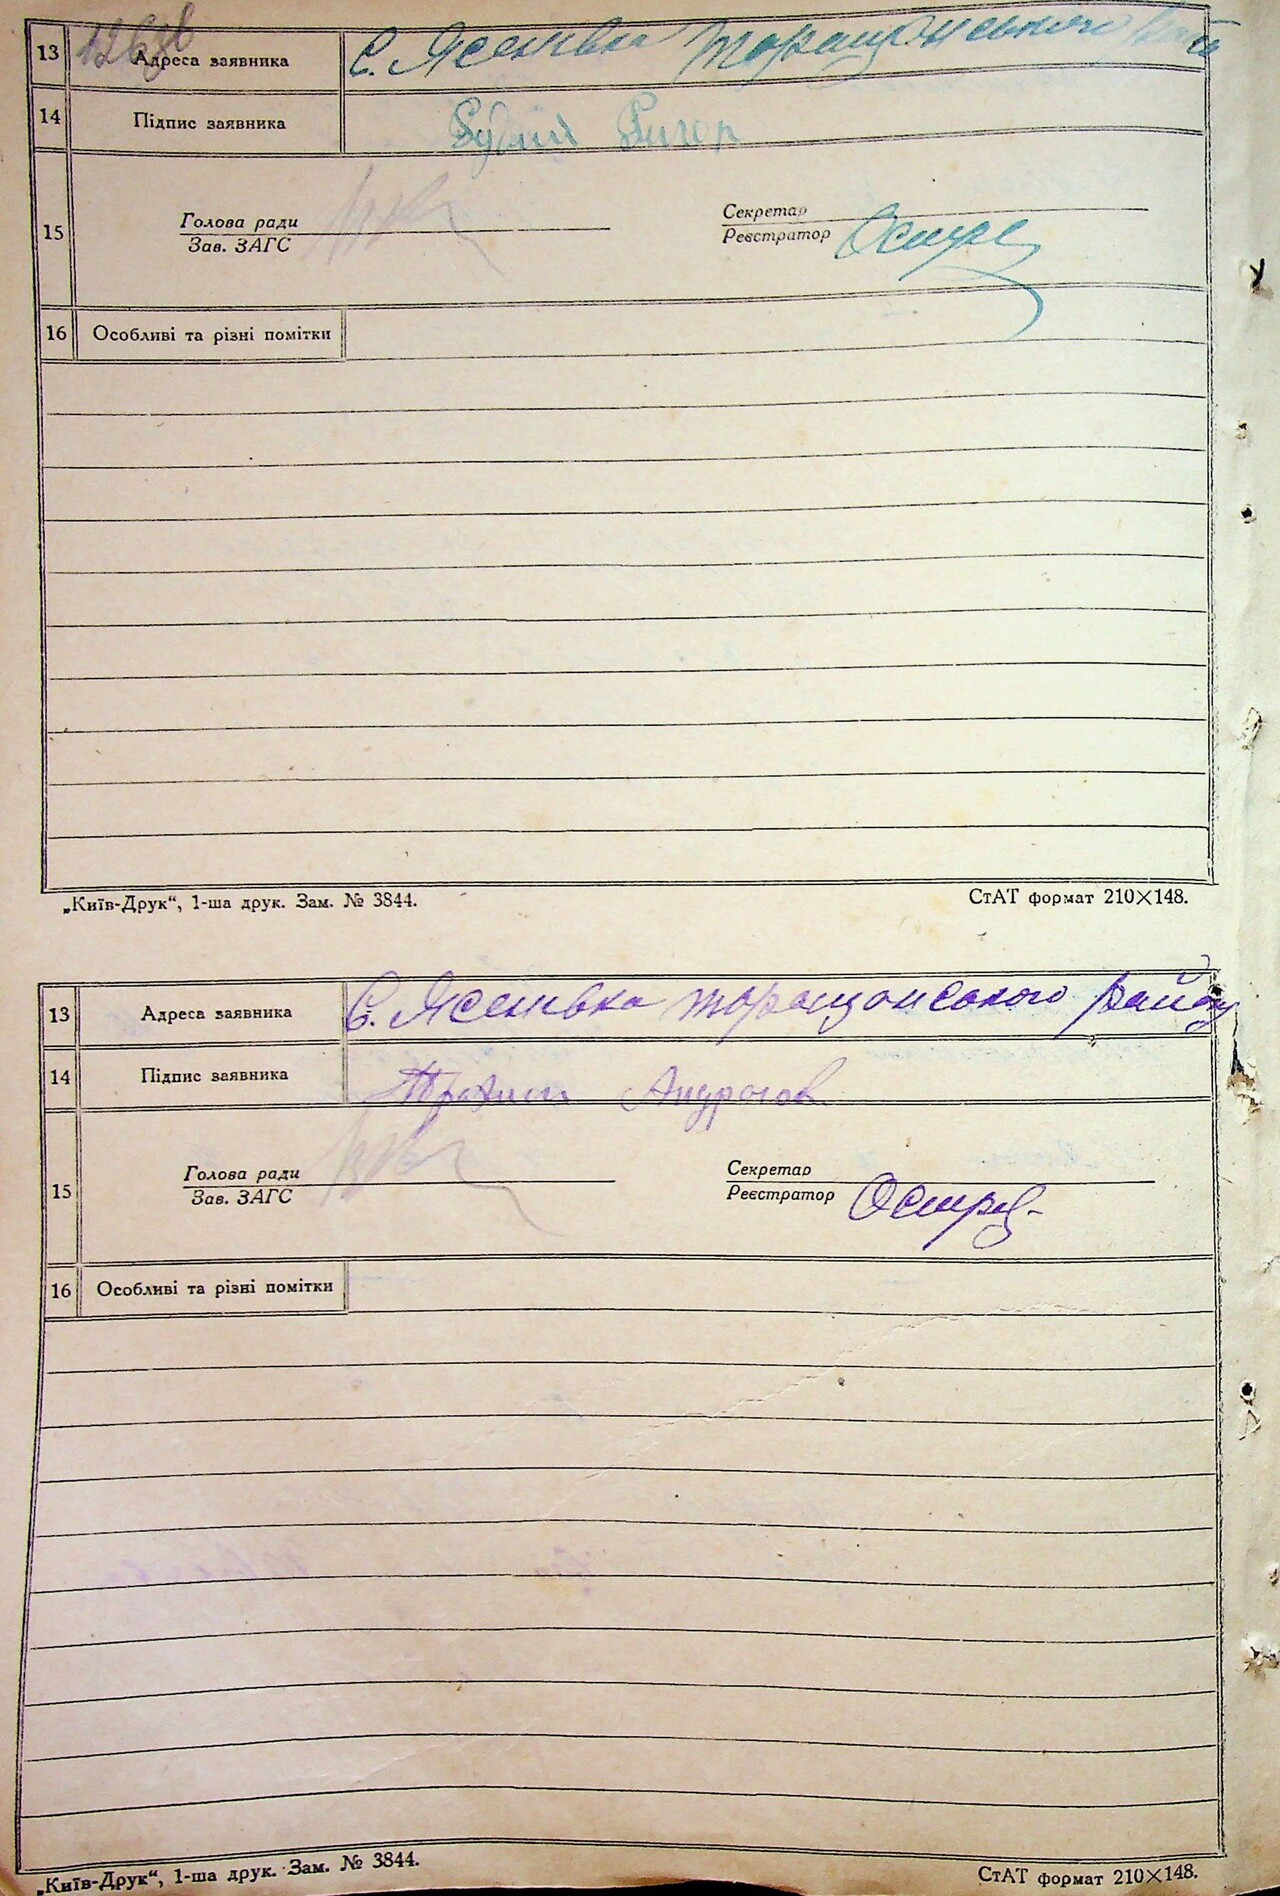 13 Адреса заявника С. Ясенівка Таращанського рай
14 Підпис заявника Рудий Григор
15 Голова ради Секретар
Зав. ЗАГС Реєстратор
16 Особливі та різні помітки
„Київ-Друк“, 1-ша друк. Зам. № 3844. СтАТ формат 210×148.
13 Адреса заявника С. Ясенівка Таращанського району
14 Підпис заявника
15 Голова ради Секретар
Зав. ЗАГС Реєстратор
16 Особливі та різні помітки
„Київ-Друк“, 1-ша друк. Зам. № 3844. СтАТ формат 210×148.